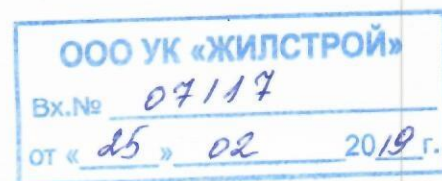 ООО УК «ЖИЛСТРОЙ»
Вх.№ 07117
от « 25 » 02 2019 г.